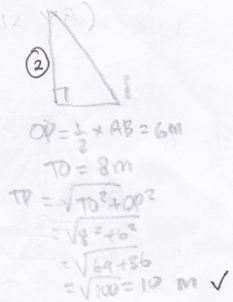 ②
OP = 1/2 × AB = 6m
TO = 8m
TP = √TO²+OP²
= √8²+6²
= √64+36
= √100 = 10 m ✓